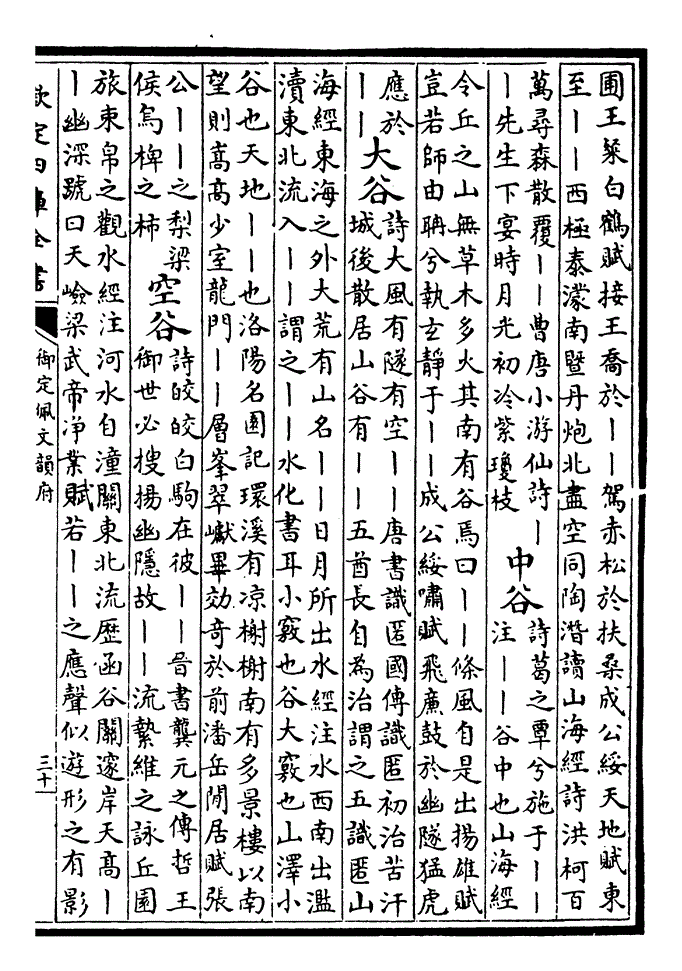 圃王筞白鶴賦接王喬於――駕赤松於扶桑成公綏天地賦東
至――西極泰濛南暨丹炮北盡空同陶潛讀山海經詩洪柯百
萬尋森散覆――曹唐小游仙詩―
―先生下宴時月光初冷紫瓊枝
中谷
詩葛之覃兮施于――
注――谷中也山海經
令丘之山無草木多火其南有谷焉曰――條風自是出揚雄賦
豈若師由聃兮執玄靜于――成公綏嘯賦飛廉鼓於幽隧猛虎
應於
――
大谷
詩大風有隧有空――唐書識匿國傳識匿初治苦汗
城後散居山谷有――五酋長自為治謂之五識匿山
海經東海之外大荒有山名――日月所出水經注水西南出濫
瀆東北流入――謂之――水化書耳小竅也谷大竅也山澤小
谷也天地――也洛陽名園記環溪有凉榭榭南有多景樓以南
望則嵩高少室龍門――層峯翠巘畢効竒於前潘岳閒居賦張
公――之梨梁
侯烏椑之柿
空谷
詩皎皎白駒在彼――晉書龔元之傳哲王
御世必搜揚幽隱故――流縶維之詠丘園
旅束帛之觀水經注河水自潼關東北流歷函谷關邃岸天高―
―幽深號曰天嶮梁武帝净業賦若――之應聲似遊形之有影
欽定四庫全書
御定佩文韻府
三十一